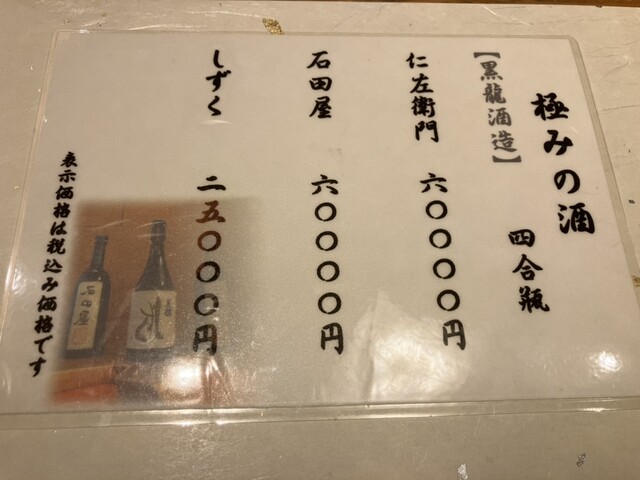 極みの酒 四合瓶
【黒龍酒造】
仁左衛門 六〇〇〇〇円
石田屋 六〇〇〇〇円
しずく 二五〇〇〇円
表示価格は税込み価格です
石田屋